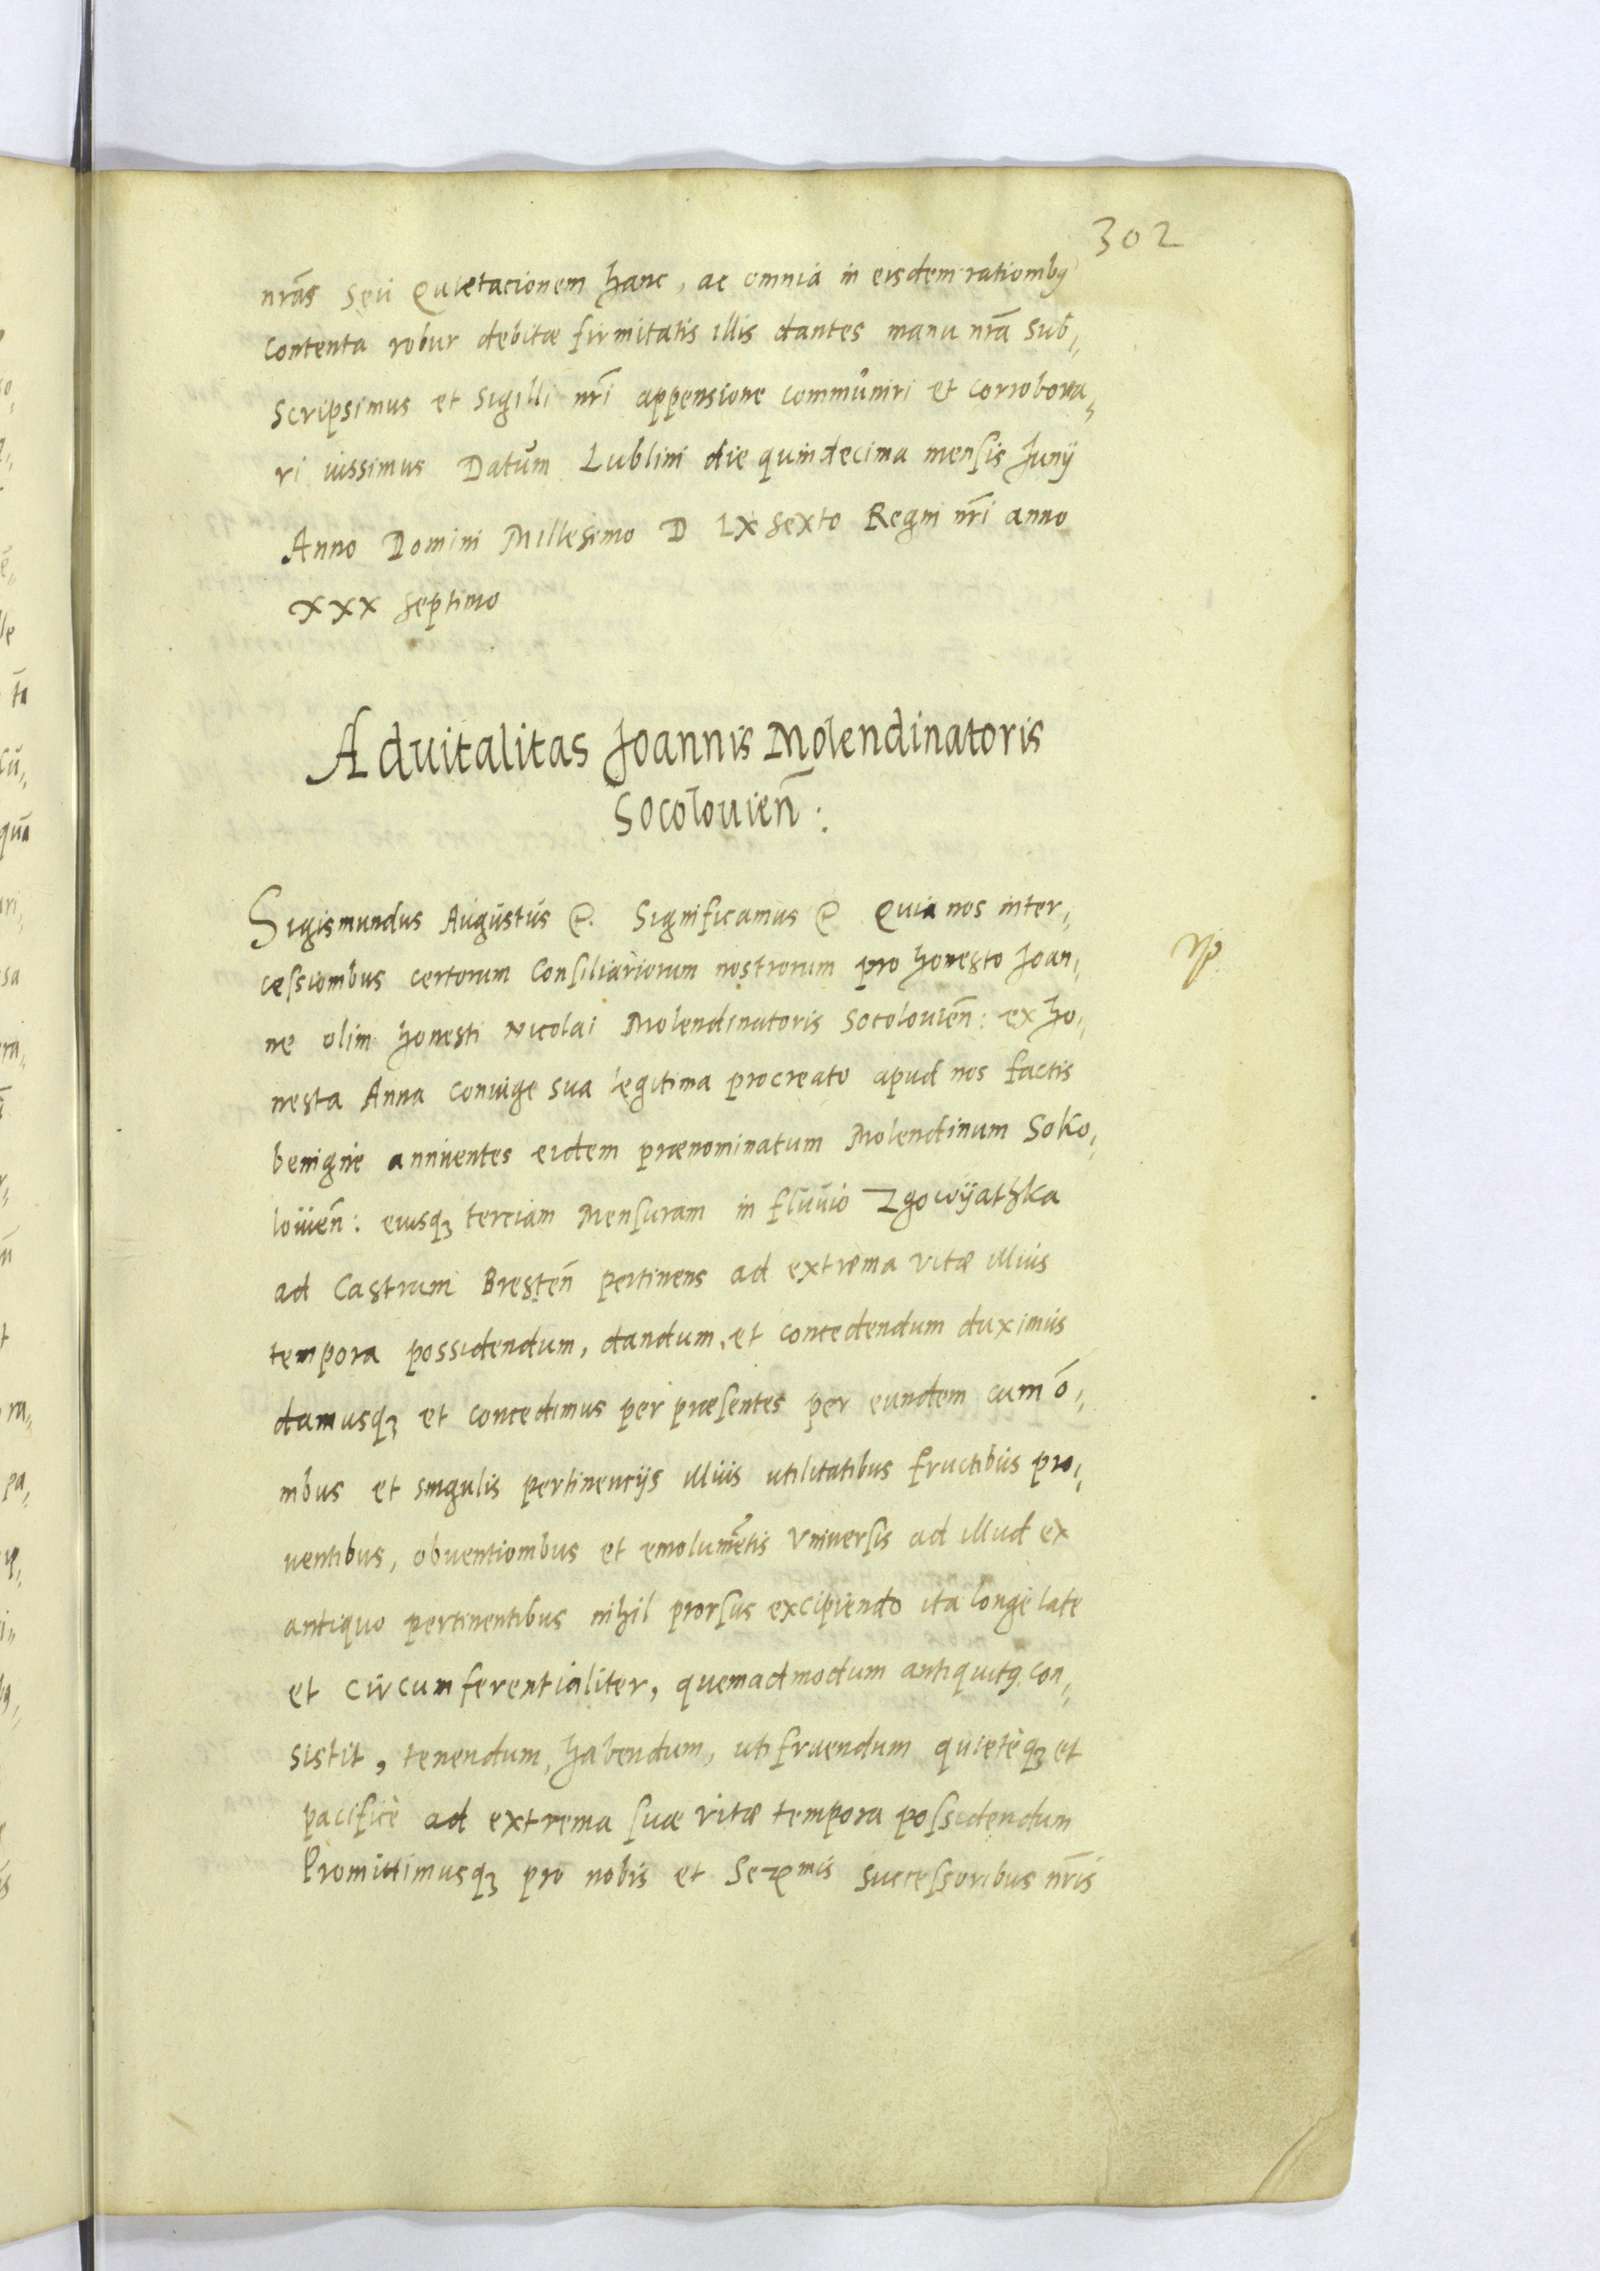 302
nr̃as seu Quietacionem hanc, ac omnia in eisdem rationibꝯ
contenta robur debitæ firmitatis illis dantes manu nr̃a sub,
scripsimus et sigilli nr̃i appensione communiri et corrobora,
ri iussimus Datum Lublini die quindecima mensis Junÿ
Anno Domini Millesimo D LX sexto Regni nr̃i anno
XXX septimo
Advitalitas Joannis Molendinatoris
Socolouien̄:
Sigismundus Augustus &. Significamus & Quia nos inter,
cessionibus certorum Consiliariorum nostrorum pro honesto Joan,
ne olim honesti Nicolai Molendinatoris Socolouien̄: ex ho,
nesta Anna coniuge sua legitima procreato apud nos factis
benignè annuentes eidem prænominatum Molendinum Soko,
louien̄: eiusqꝫ terciam Mensuram in fluuio Zgowÿathka
ad Castrum Bresten̄ pertinens ad extrema vitæ illius
tempora possidendum, dandum, et concedendum duximus
damusqꝫ et concedimus per præsentes per eundem cum ō,
nibus et singulis pertinencÿs illius utilitatibus fructibus pro,
uentibus, obuentionibus et emolumētis Vniversis ad illud ex
antiquo pertinentibus nihil prorsus excipiendo ita longè late
et circumferentialiter, quemadmodum antiquitꝯ con,
sistit, tenendum, habendum, utifruendum quietèqꝫ et
pacificè ad extrema suæ vitæ tempora possidendum
Promittimusqꝫ pro nobis et Serᵐⁱˢ successoribus nr̃is